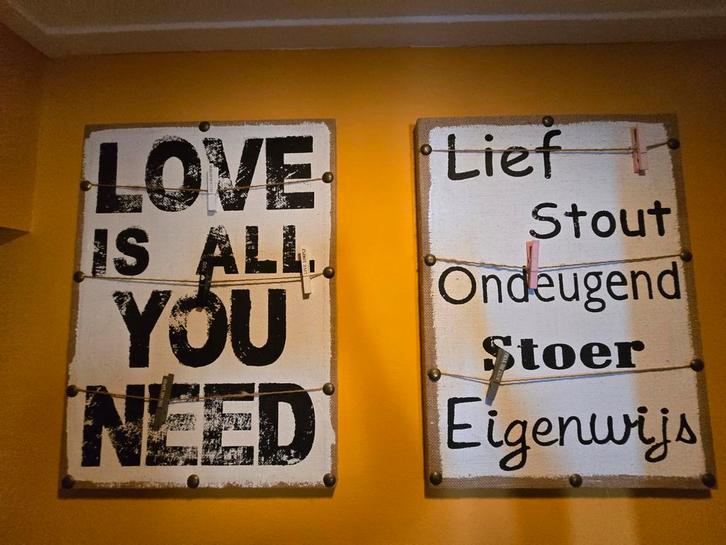 LOVE
IS ALL
YOU
NEED
Lief
Stout
Ondeugend
Stoer
Eigenwijs